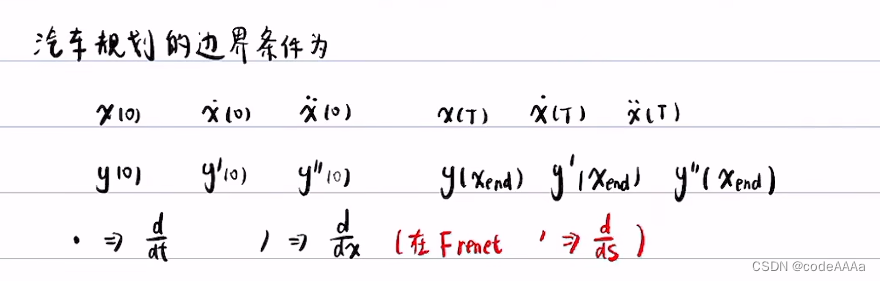 汽车规划的边界条件为
x(0) ẋ(0) ẍ(0) x(T) ẋ(T) ẍ(T)
y(0) y'(0) y''(0) y(x_end) y'(x_end) y''(x_end)
· ⇒ d/dt ' ⇒ d/dx (在Frenet ' ⇒ d/ds)
CSDN @codeAAAa